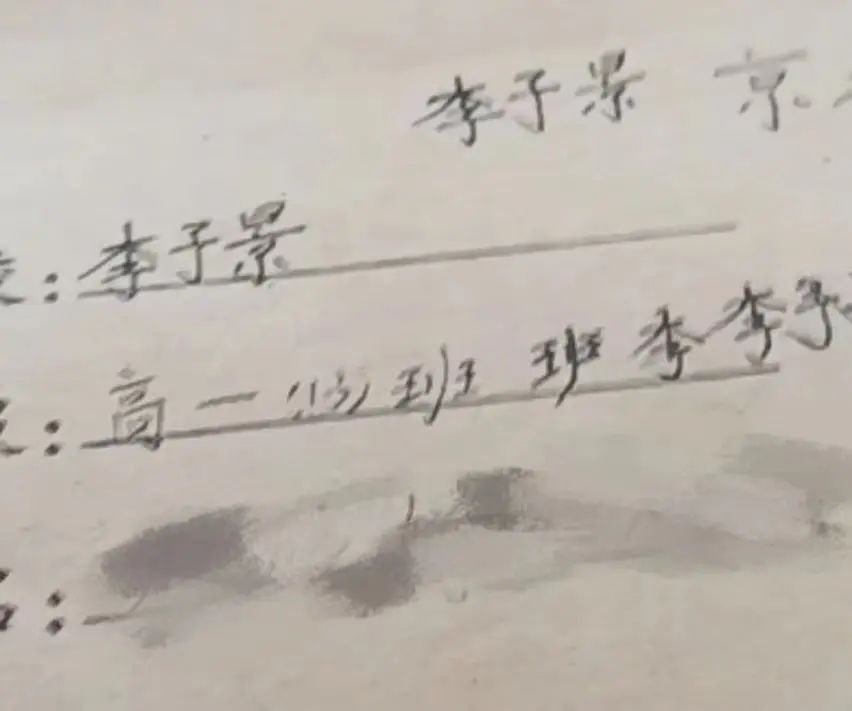 李子景 京
：李子景
：高一(13)班 班 李 李子
：